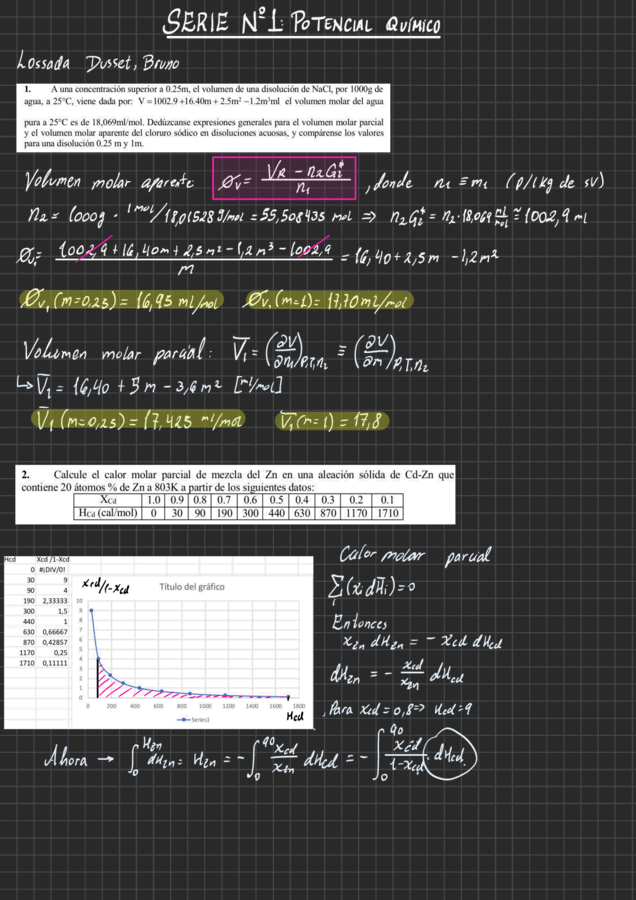 SERIE Nº1: POTENCIAL QUÍMICO
Lossada Dusset, Bruno
1. A una concentración superior a 0.25m, el volumen de una disolución de NaCl, por 1000g de
agua, a 25°C, viene dada por: V =1002.9 +16.40m + 2.5m² −1.2m³ml el volumen molar del agua
pura a 25°C es de 18,069ml/mol. Dedúzcanse expresiones generales para el volumen molar parcial
y el volumen molar aparente del cloruro sódico en disoluciones acuosas, y compárense los valores
para una disolución 0.25 m y 1m.
Volumen molar aparente Øv = (VR − n2 G̅i*)/n1, donde n1 ≡ m1 (p/1kg de sv)
n2 = 1000g · 1mol/18,01528 g/mol = 55,508435 mol ⇒ n2 G̅i* = n2·18,069 ml/mol ≅ 1002,9 ml
Øv = (1002,9 + 16,40m + 2,5m² − 1,2m³ − 1002,9)/m = 16,40 + 2,5m − 1,2m²
Øv1 (m=0,25) = 16,95 ml/mol Øv1 (m=1) = 17,70 ml/mol
Volumen molar parcial: V̅1 = (∂V/∂n1)P,T,n2 ≡ (∂V/∂m)P,T,n2
↳ V̅1 = 16,40 + 5m − 3,6m² [ml/mol]
V̅1 (m=0,25) = 17,425 ml/mol V̅1 (m=1) = 17,8
2. Calcule el calor molar parcial de mezcla del Zn en una aleación sólida de Cd-Zn que
contiene 20 átomos % de Zn a 803K a partir de los siguientes datos:
XCd 1.0 0.9 0.8 0.7 0.6 0.5 0.4 0.3 0.2 0.1
HCd (cal/mol) 0 30 90 190 300 440 630 870 1170 1710
Hcd Xcd /1-Xcd
0 #¡DIV/0!
30 9
90 4
190 2,33333
300 1,5
440 1
630 0,66667
870 0,42857
1170 0,25
1710 0,11111
Xcd/1-Xcd
Título del gráfico
10
9
8
7
6
5
4
3
2
1
0
0 200 400 600 800 1000 1200 1400 1600 1800
Series1
Hcd
Calor molar parcial
∑i (xi dH̅i) = 0
Entonces
xzn dHzn = − xcd dHcd
dHzn = − xcd/xzn dHcd
Para xcd = 0,8 ⇒ Hcd = 9
Ahora → ∫0^Hzn dHzn = Hzn = −∫0^90 xcd/xzn dHcd = −∫0^90 xcd/1−xcd · dHcd.